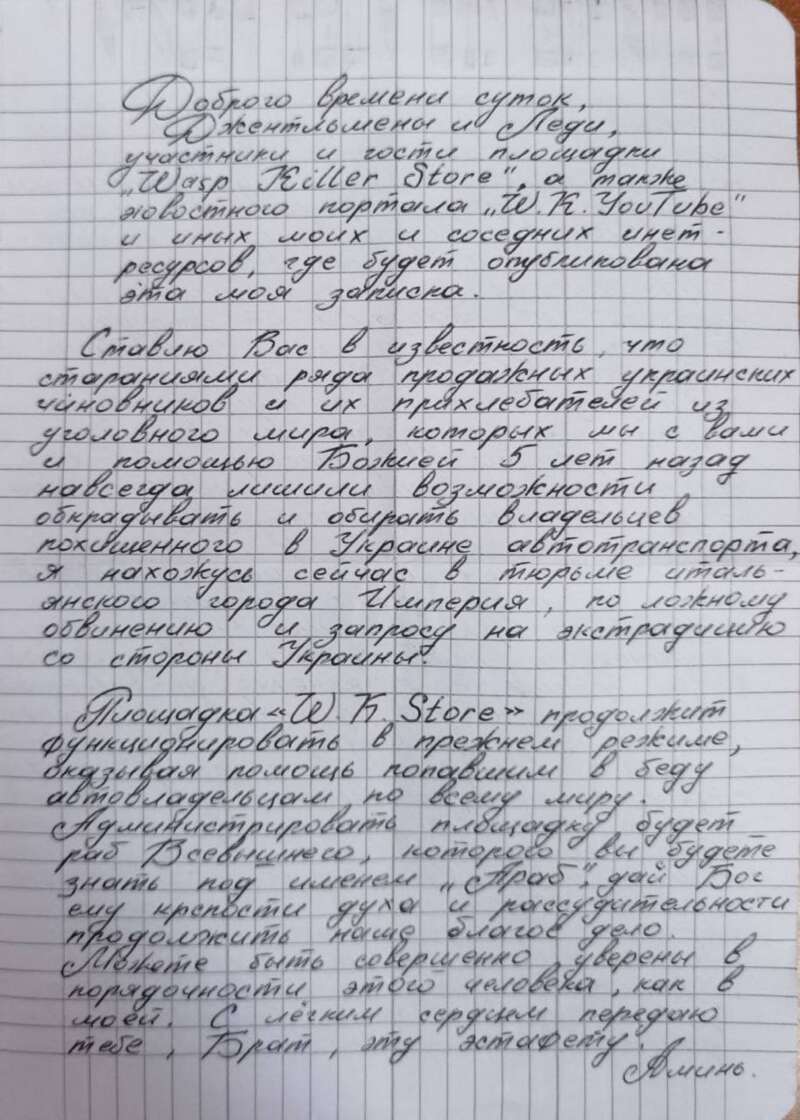 Доброго времени суток,
Джентльмены и Леди,
участники и гости площадки
„Wasp Killer Store", а также
новостного портала „W.K.YouTube"
и иных моих и соседних инет-
ресурсов, где будет опубликована
эта моя записка.
Ставлю Вас в известность, что
стараниями ряда продажных украинских
чиновников и их прихлебателей из
уголовного мира, которых мы с вами
и помощью Божией 5 лет назад
навсегда лишили возможности
обкрадывать и обирать владельцев
похищенного в Украине автотранспорта,
я нахожусь сейчас в тюрьме италь-
янского города Империя, по ложному
обвинению и запросу на экстрадицию
со стороны Украины.
Площадка «W.K. Store» продолжит
функционировать в прежнем режиме,
оказывая помощь попавшим в беду
автовладельцам по всему миру.
Администрировать площадку будет
раб Всевышнего, которого вы будете
знать под именем „Араб", дай Бог
ему крепости духа и рассудительности
продолжить наше благое дело.
Можете быть совершенно уверены в
порядочности этого человека, как в
моей. С лёгким сердцем передаю
тебе, Брат, эту эстафету.
Аминь.